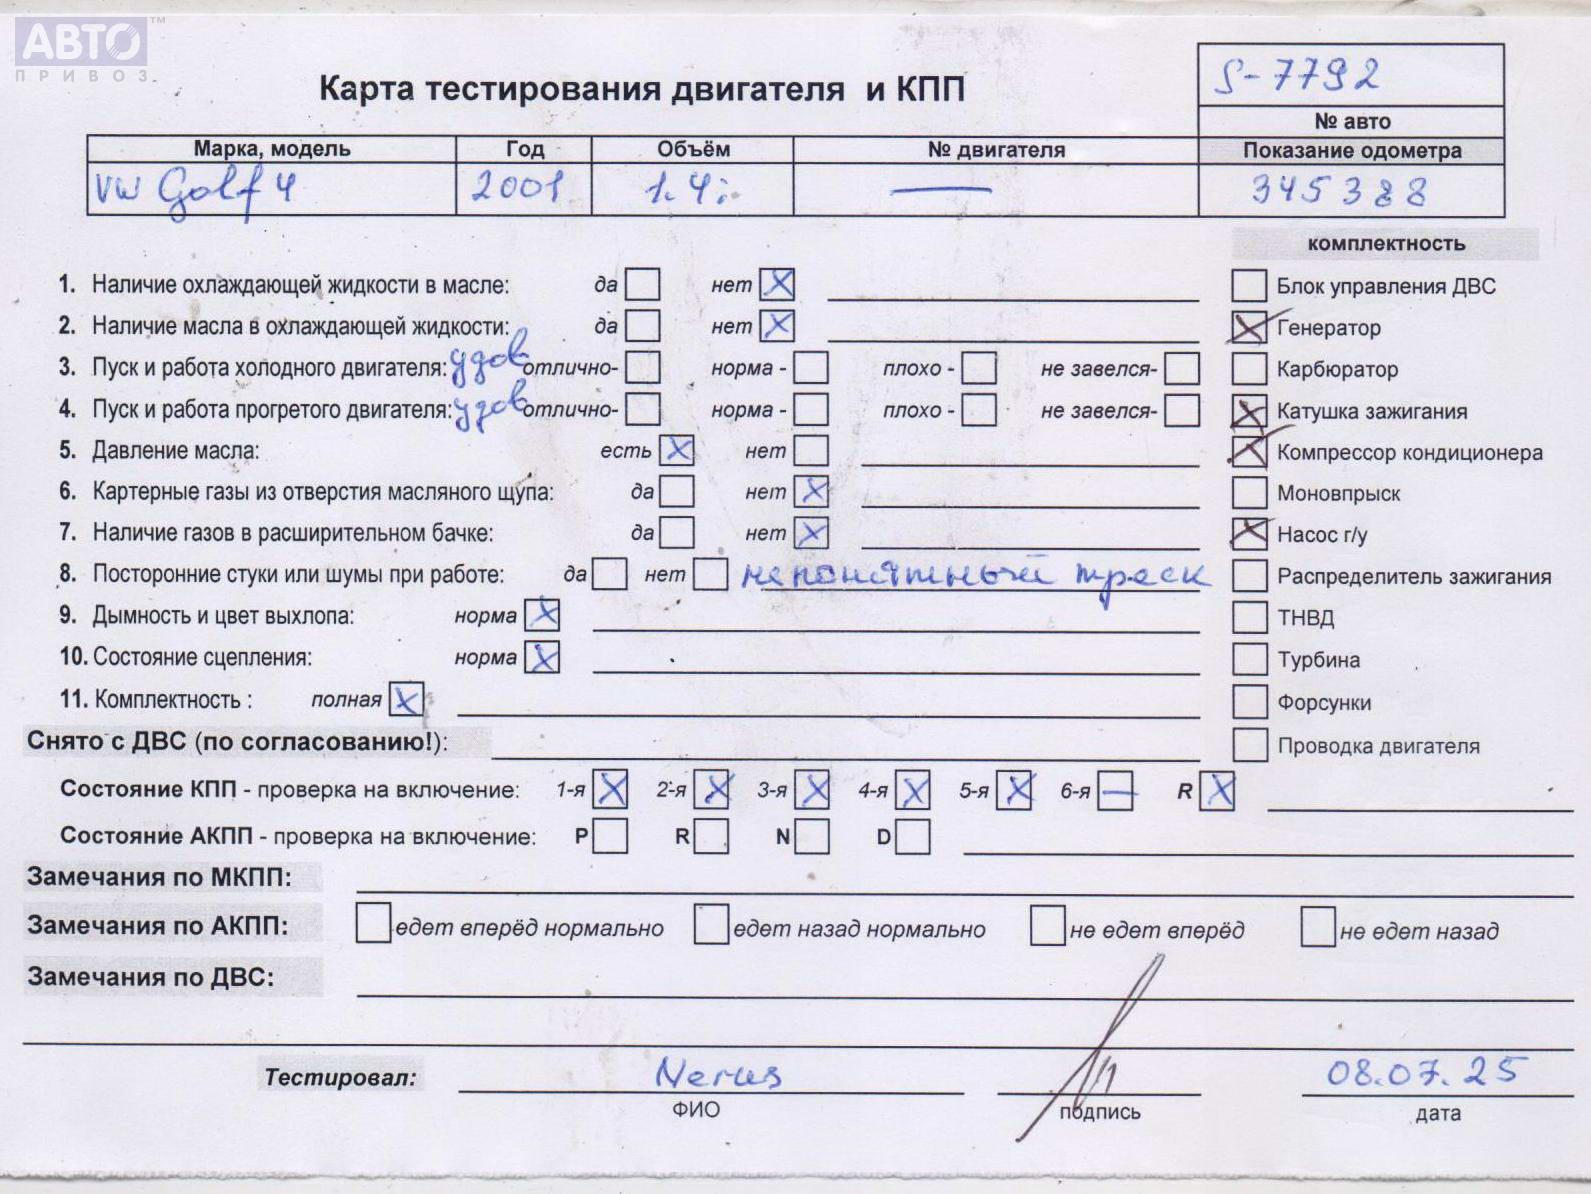 АВТО™
ПРИВОЗ
Карта тестирования двигателя и КПП
S-7792
№ авто
Марка, модель Год Объём № двигателя Показание одометра
VW Golf 4 2001 1.4i — 345388
комплектность
1. Наличие охлаждающей жидкости в масле: да нет X
Блок управления ДВС
2. Наличие масла в охлаждающей жидкости: да нет X
X Генератор
3. Пуск и работа холодного двигателя: удов отлично- норма - плохо - не завелся-
Карбюратор
4. Пуск и работа прогретого двигателя: удов отлично- норма - плохо - не завелся-
X Катушка зажигания
5. Давление масла: есть X нет
X Компрессор кондиционера
6. Картерные газы из отверстия масляного щупа: да нет X
Моновпрыск
7. Наличие газов в расширительном бачке: да нет X
X Насос г/у
8. Посторонние стуки или шумы при работе: да нет непонятный треск
Распределитель зажигания
9. Дымность и цвет выхлопа: норма X
ТНВД
10. Состояние сцепления: норма X
Турбина
11. Комплектность : полная X
Форсунки
Снято с ДВС (по согласованию!):
Проводка двигателя
Состояние КПП - проверка на включение: 1-я X 2-я X 3-я X 4-я X 5-я X 6-я — R X
Состояние АКПП - проверка на включение: P R N D
Замечания по МКПП:
Замечания по АКПП: едет вперёд нормально едет назад нормально не едет вперёд не едет назад
Замечания по ДВС:
Тестировал: 08.07.25
ФИО подпись дата